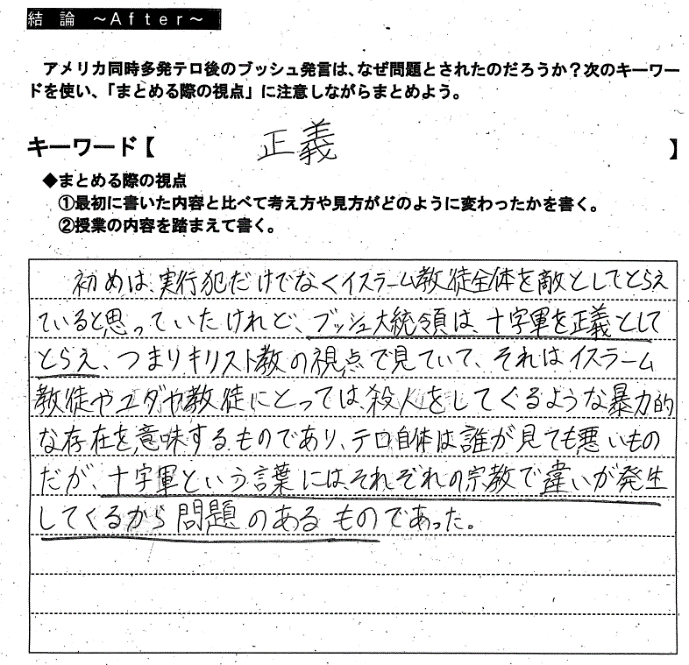 結 論 ～After～
アメリカ同時多発テロ後のブッシュ発言は、なぜ問題とされたのだろうか？次のキーワー
ドを使い、「まとめる際の視点」に注意しながらまとめよう。
キーワード【 正義 】
◆まとめる際の視点
①最初に書いた内容と比べて考え方や見方がどのように変わったかを書く。
②授業の内容を踏まえて書く。
初めは、実行犯だけでなくイスラーム教徒全体を敵としてとらえ
ていると思っていたけれど、ブッシュ大統領は、十字軍を正義として
とらえ、つまりキリスト教の視点で見ていて、それはイスラーム
教徒やユダヤ教徒にとっては、殺人をしてくるような暴力的
な存在を意味するものであり、テロ自体は誰が見ても悪いもの
だが、十字軍という言葉には、それぞれの宗教で違いが発生
してくるから問題のあるものであった。